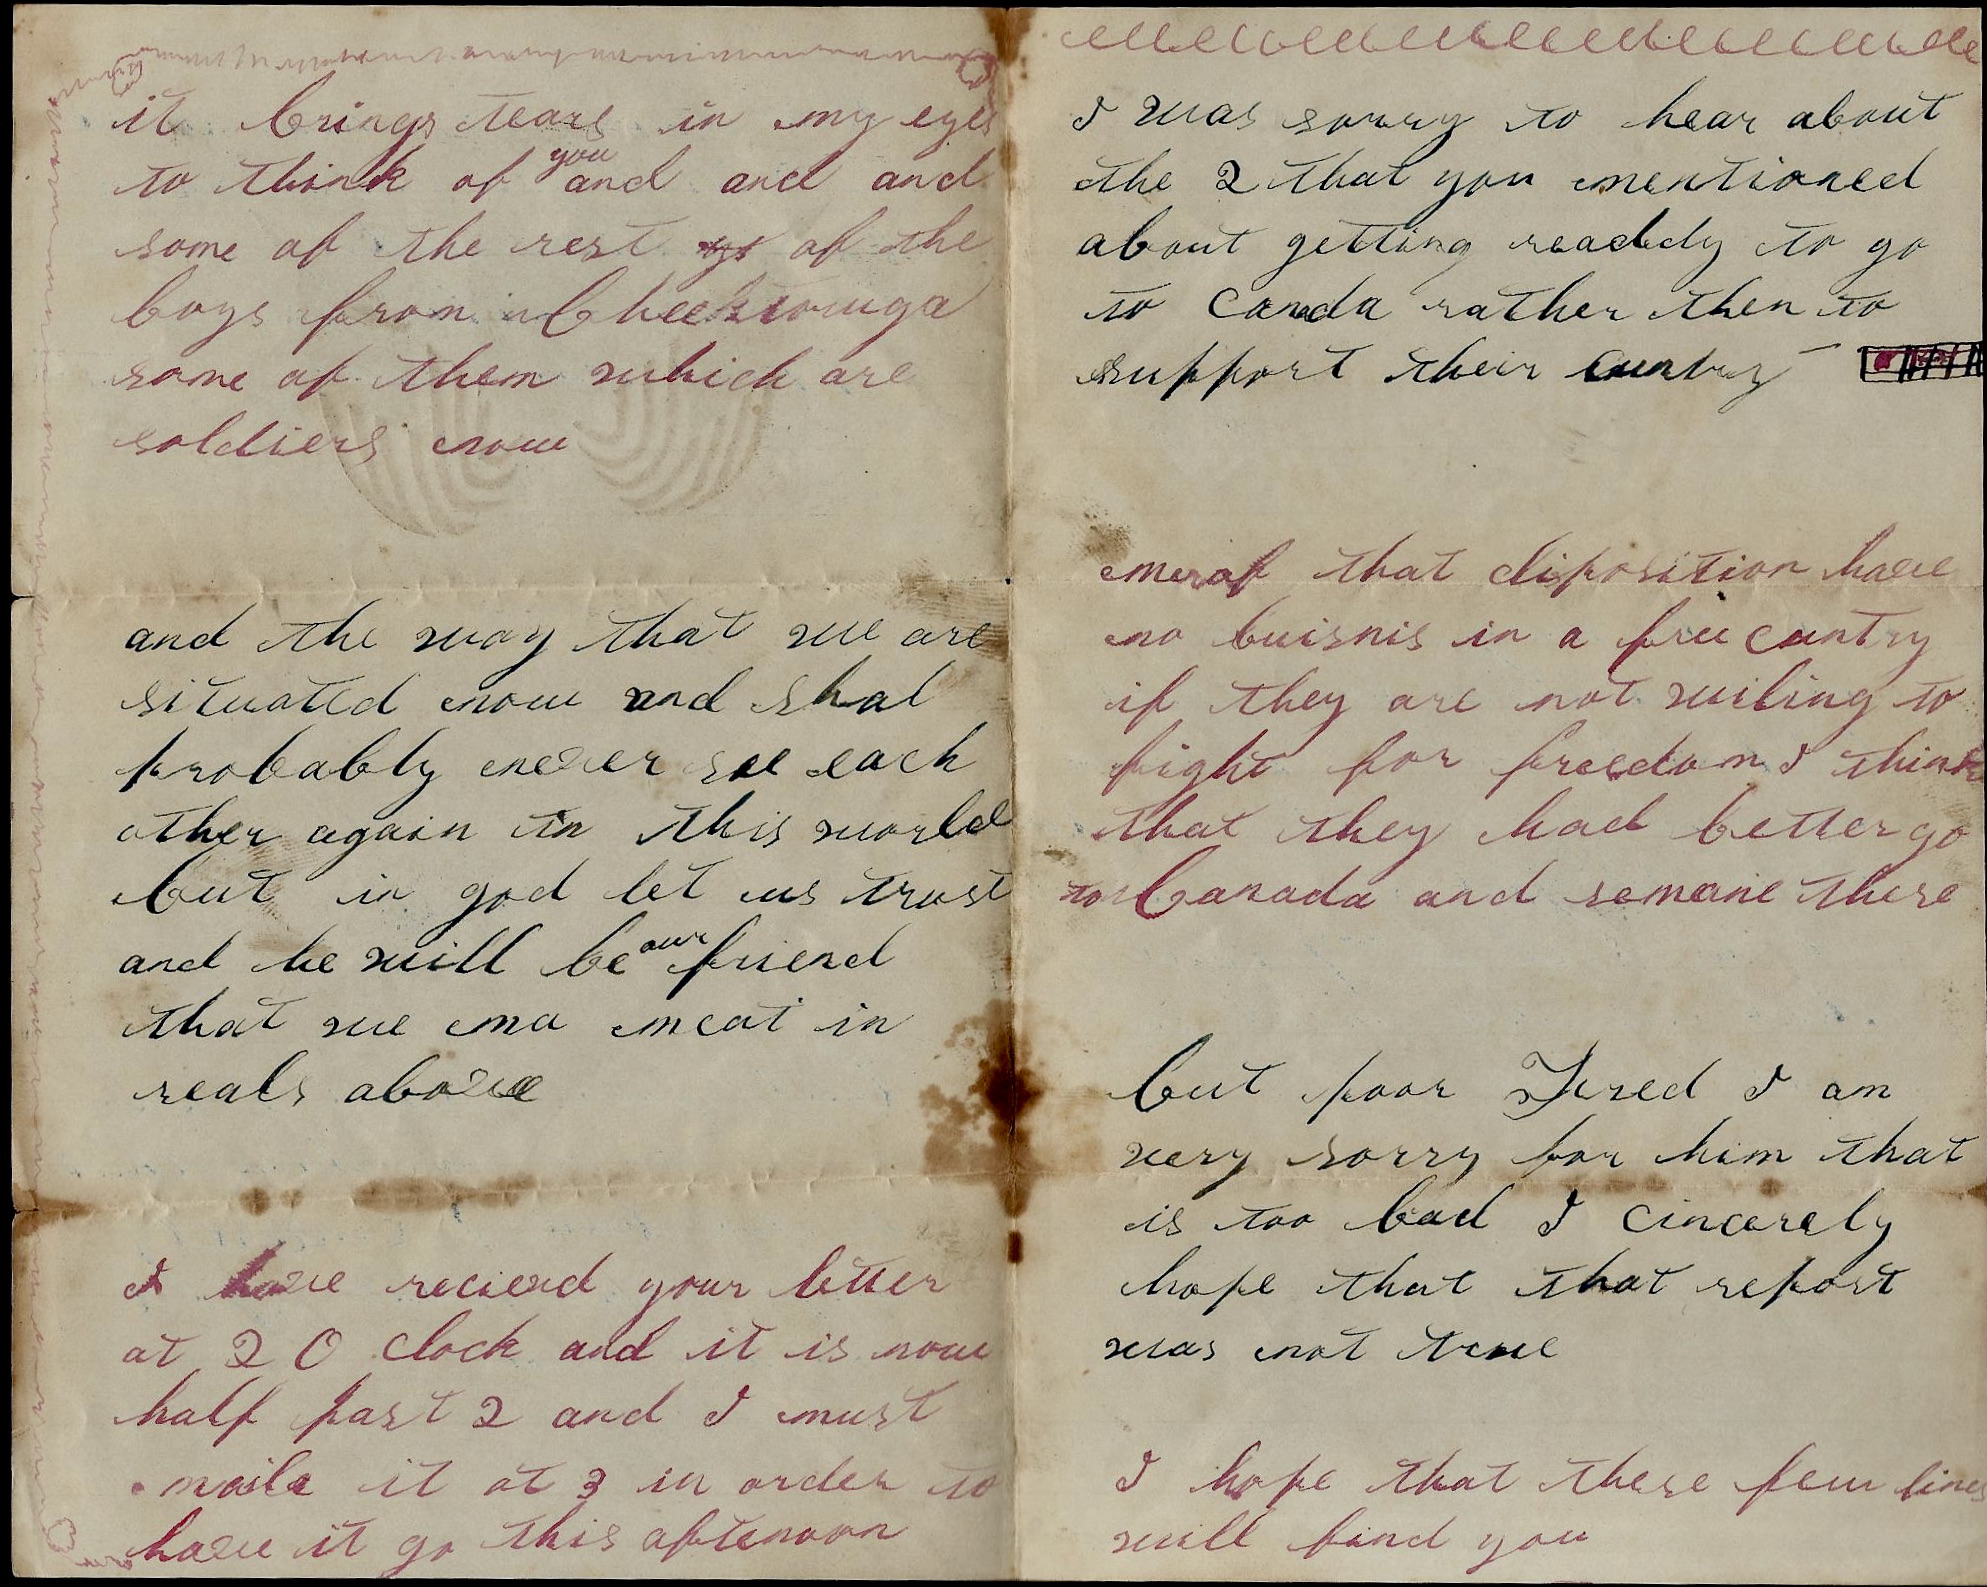 it brings tears in my eyes
to think of you and and and
some of the rest of the
boys from Cheektowuga
some of them which are
soldiers now
and the way that we are
situated now and shal
probably never see each
other again in this world
but in god let us trust
and he will be our friend
that we ma meat in
reals above
I have reciend your letter
at 2 O Clock and it is now
half past 2 and I must
maile it at 3 in order to
have it go this afternoon
I was sorry to hear about
the 2 that you mentioned
about getting readdy to go
to Canda rather then to
support their cuntry
men of that disposition have
no buisnis in a free cuntry
if they are not wiling to
fight for freedom I think
that they had better go
to Canada and remane there
but poor Fred I am
very sorry for him that
is too bad I cincerely
hope that that report
was not true
I hope that these few lines
will find you